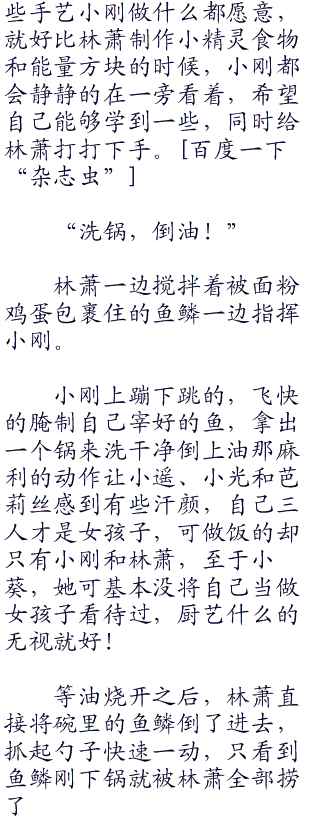 些手艺小刚做什么都愿意，
就好比林萧制作小精灵食物
和能量方块的时候，小刚都
会静静的在一旁看着，希望
自己能够学到一些，同时给
林萧打打下手。[百度一下
“杂志虫”]
“洗锅，倒油！”
林萧一边搅拌着被面粉
鸡蛋包裹住的鱼鳞一边指挥
小刚。
小刚上蹦下跳的，飞快
的腌制自己宰好的鱼，拿出
一个锅来洗干净倒上油那麻
利的动作让小遥、小光和芭
莉丝感到有些汗颜，自己三
人才是女孩子，可做饭的却
只有小刚和林萧，至于小
葵，她可基本没将自己当做
女孩子看待过，厨艺什么的
无视就好！
等油烧开之后，林萧直
接将碗里的鱼鳞倒了进去，
抓起勺子快速一动，只看到
鱼鳞刚下锅就被林萧全部捞
了